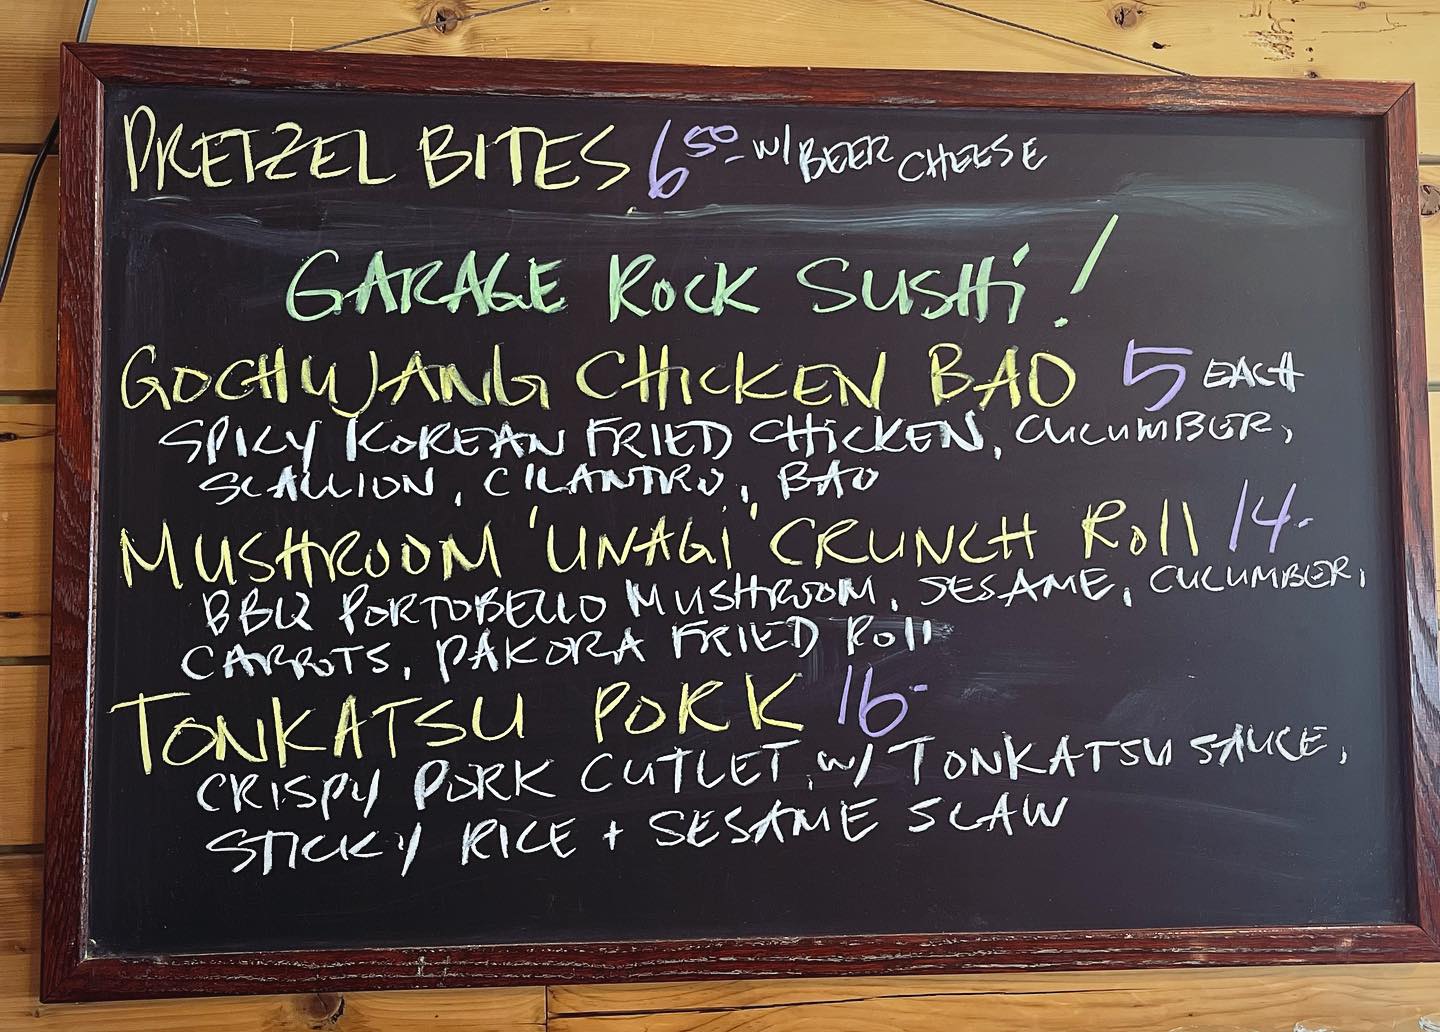 PRETZEL BITES 6 50 - W/ BEER CHEESE
GARAGE ROCK SUSHi!
GOCHUJANG CHiCKEN BAO 5 EACH
SPICY KOREAN FRIED CHiCKEN, CUCUMBER,
SCALLION, CILANTRO, BAO
MUSHROOM 'UNAGi' CRUNCH Roll 14-
BBQ PORTOBELLO MUSHROOM, SESAME, CUCUMBER,
CARROTS, PAKORA FRIED Roll
TONKATSU PORK 16-
CRISPY PORK CUTLET, W/ TONKATSU SAUCE,
STICKY RICE + SESAME SLAW